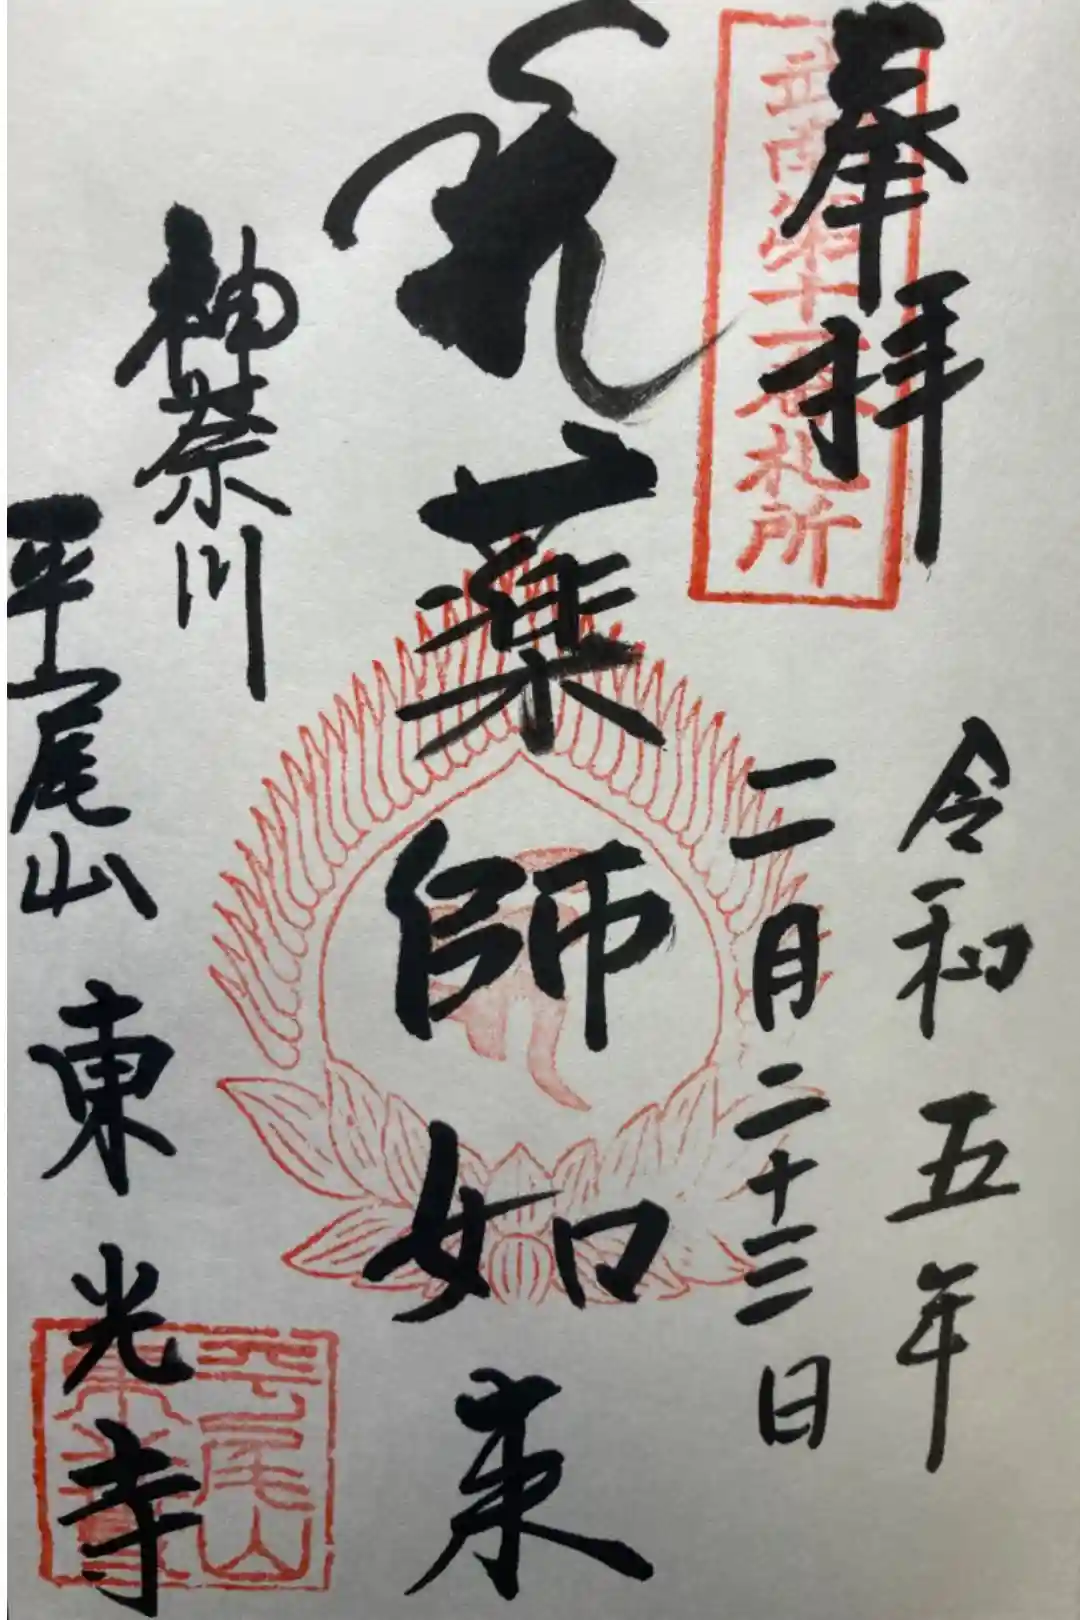 奉拝
十一番札所
令和五年
二月二十三日
薬師如来
神奈川
平尾山 東光寺
平尾山
東光寺